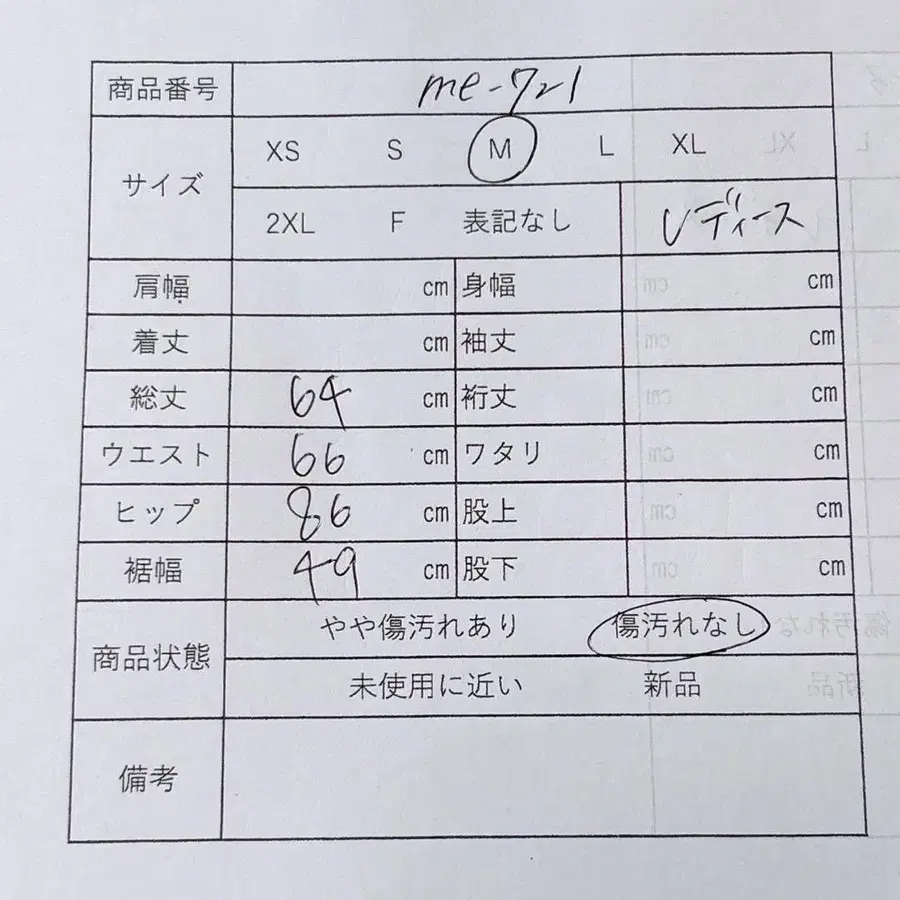 商品番号 me-721
サイズ XS S M L XL
2XL F 表記なし レディース
肩幅 cm 身幅 cm
着丈 cm 袖丈 cm
総丈 64 cm 裄丈 cm
ウエスト 66 cm ワタリ cm
ヒップ 86 cm 股上 cm
裾幅 49 cm 股下 cm
商品状態 やや傷汚れあり 傷汚れなし
未使用に近い 新品
備考